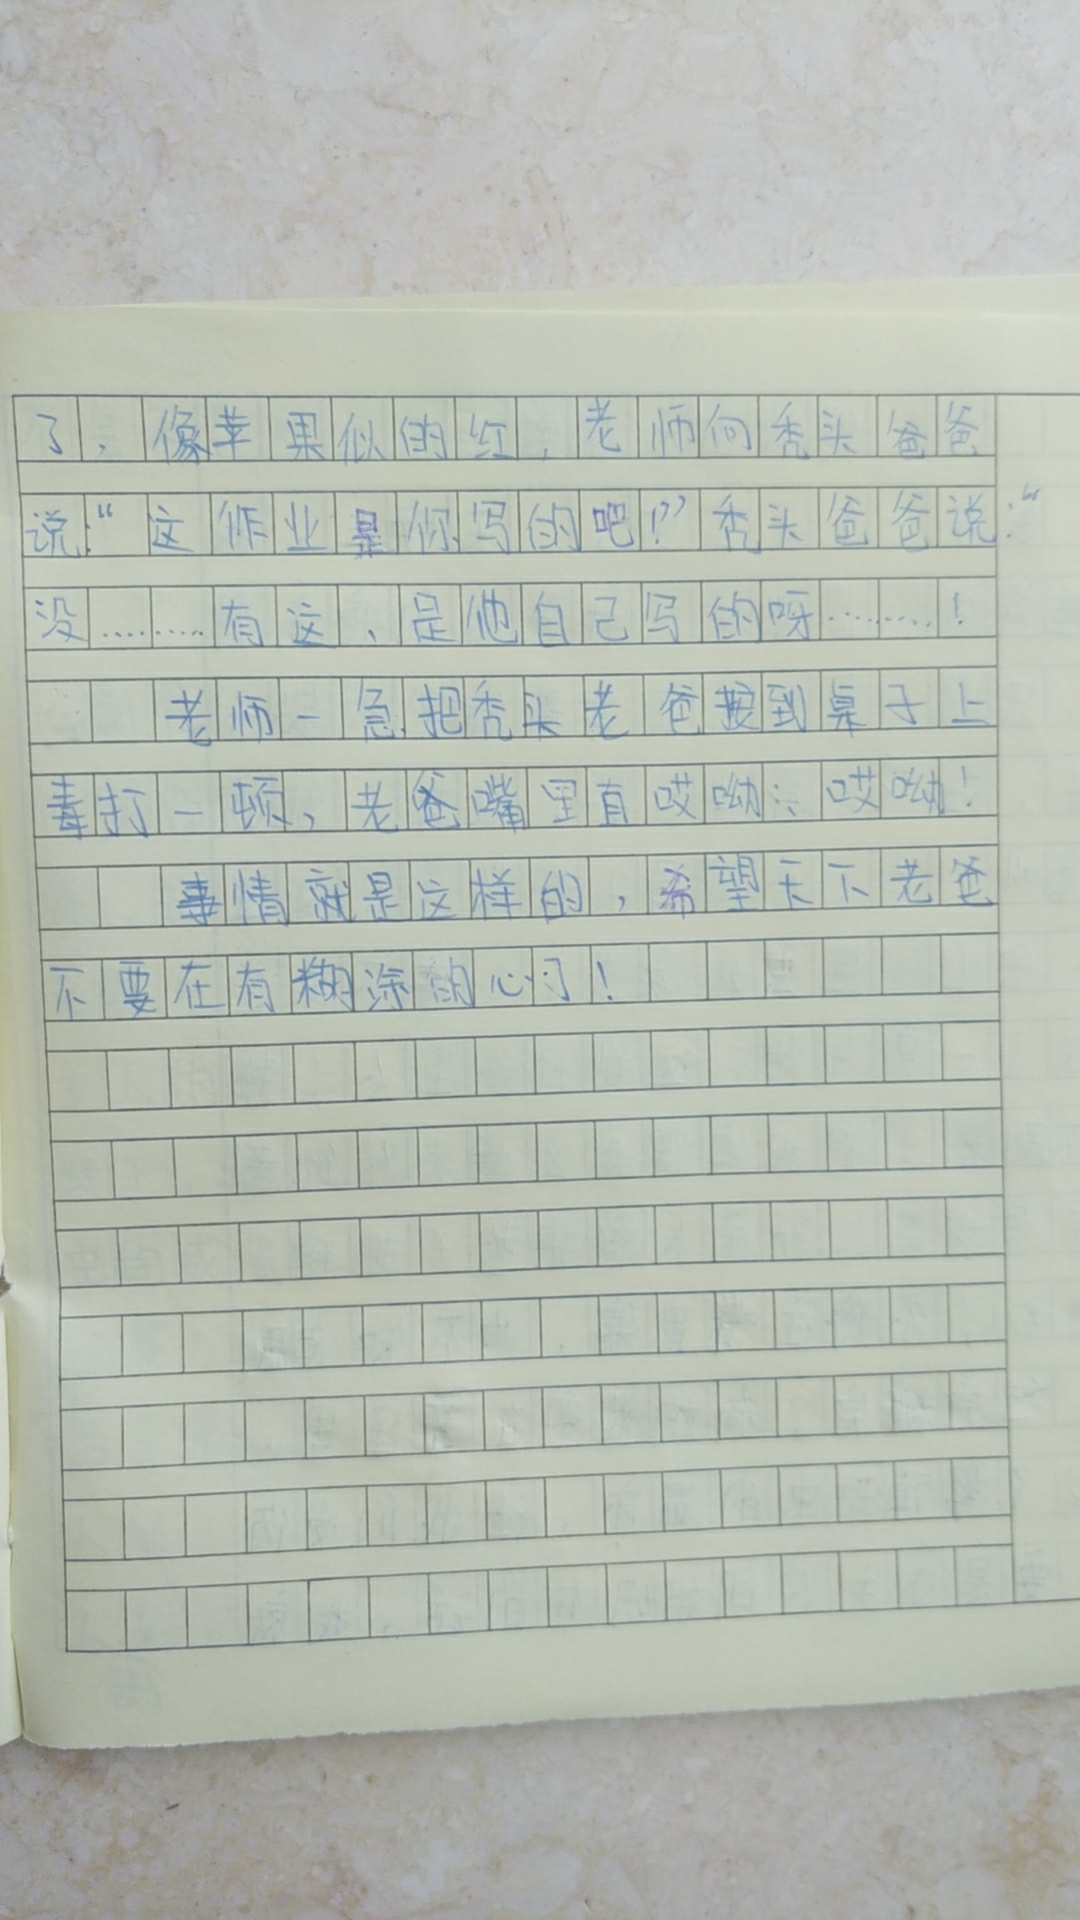 了，像苹果似的红，老师向秃头爸爸
说：“这作业是你写的吧！？”秃头爸爸说：“
没………有这、是他自己写的呀………！
老师一急把秃头老爸按到桌子上
毒打一顿，老爸嘴里直哎呦；哎呦！
事情就是这样的，希望天下老爸
不要在有糊涂的心了！